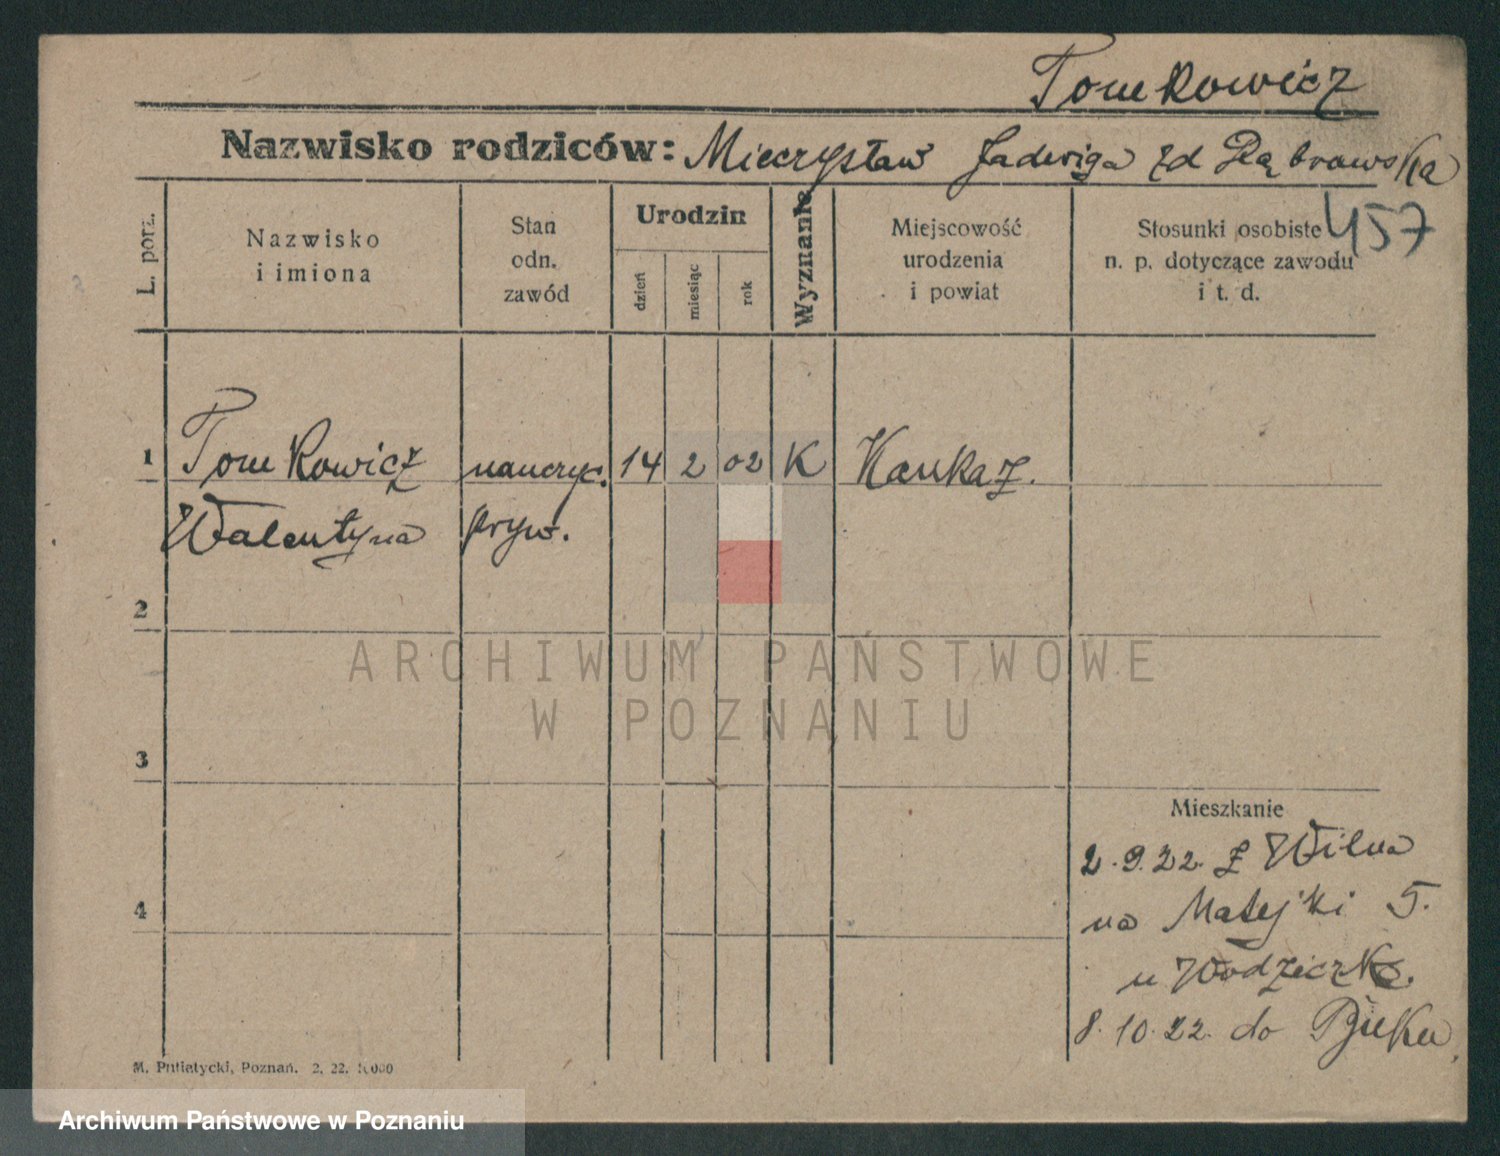 Tomkowicz
Nazwisko rodziców: Mieczysław Jadwiga zd Dąbrowska
457
L. porz.
Nazwisko
i imiona
Stan
odn.
zawód
Urodzin
dzień
miesiąc
rok
Wyznanie
Miejscowość
urodzenia
i powiat
Stosunki osobiste
n. p. dotyczące zawodu
i t. d.
1 Tomkowicz nauczyc. 14 2 02 K Kaukaz.
Walentyna pryw.
2
ARCHIWUM PAŃSTWOWE
W POZNANIU
3
Mieszkanie
2.9.22. z Wilna
4
na Matejki 5.
u Wodziczk.
8.10.22. do Buku
M. Putiatycki, Poznań. 2, 22. 5000
Archiwum Państwowe w Poznaniu